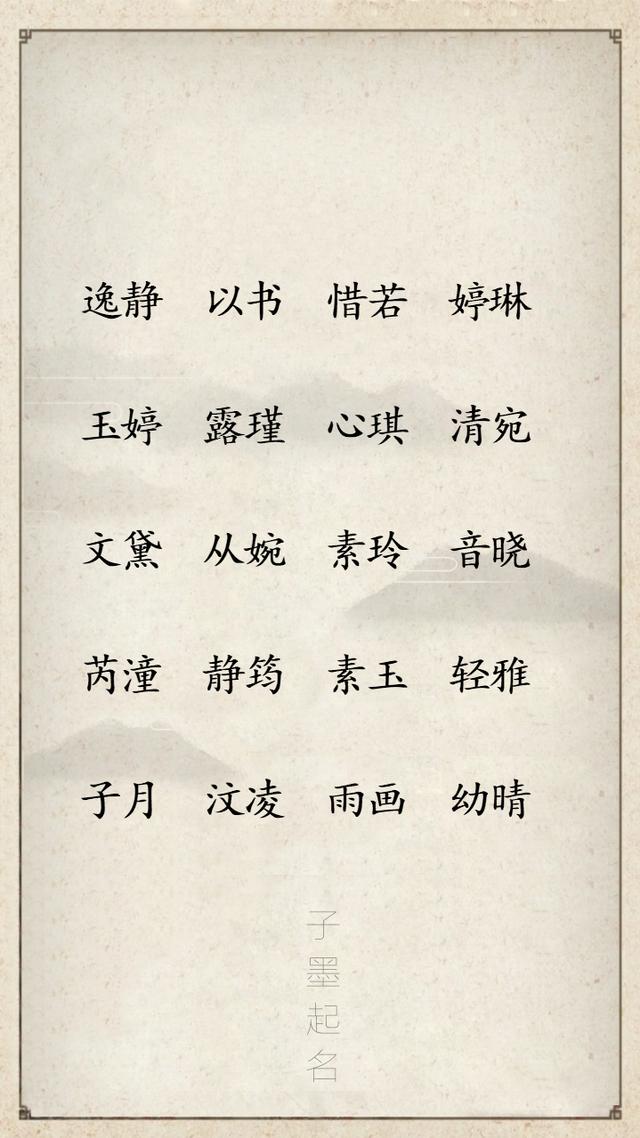 逸静 以书 惜若 婷琳
玉婷 露瑾 心琪 清宛
文黛 从婉 素玲 音晓
芮潼 静筠 素玉 轻雅
子月 汶凌 雨画 幼晴
子墨起名